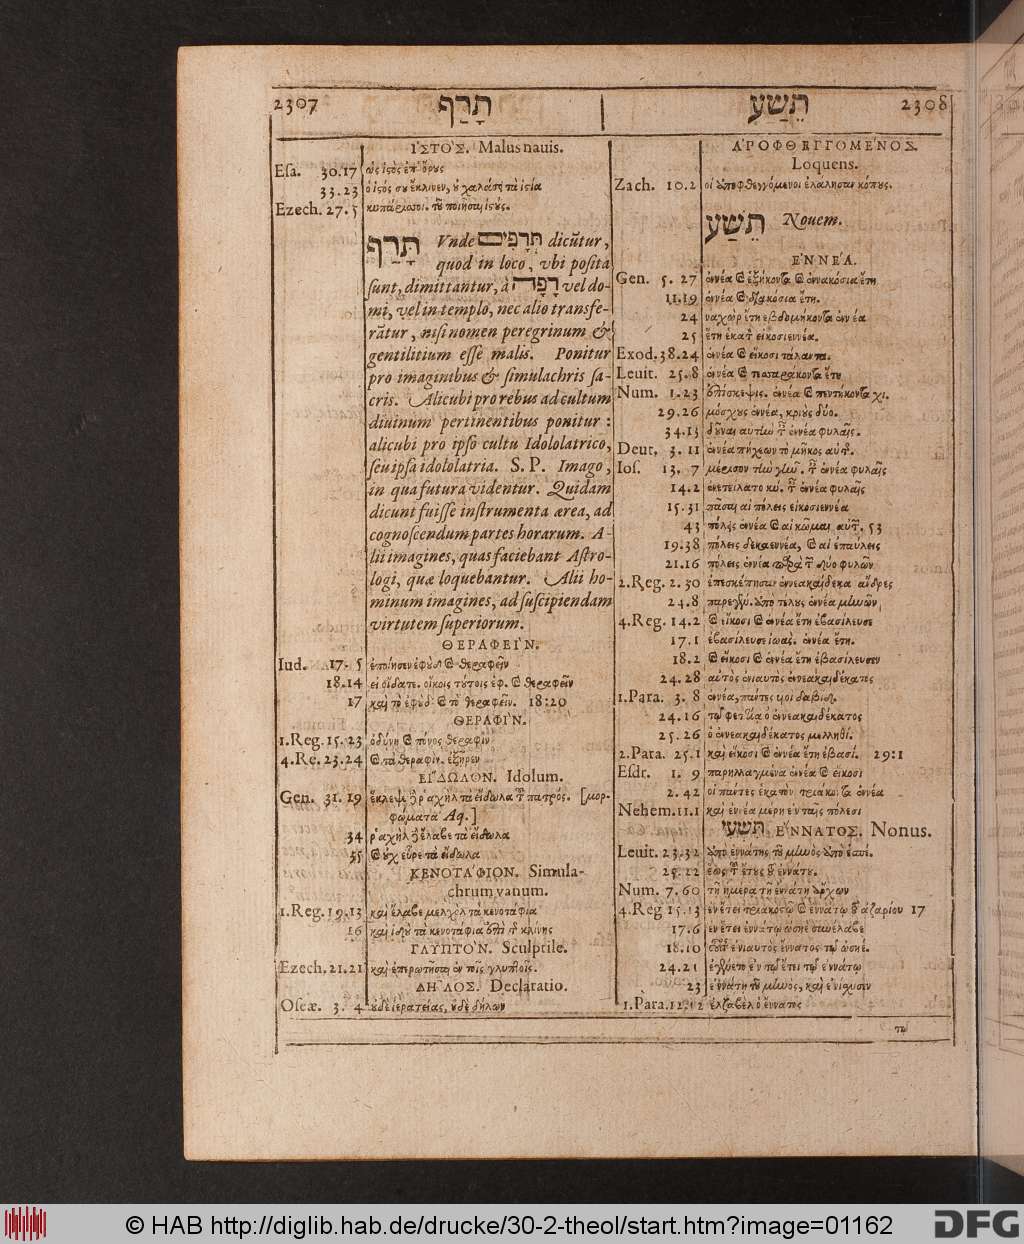 2307 תָּרַף
ἹΣΤΟ'Σ. Malus nauis.
Esa. 30.17 ὡς ἱςὸς ἐπ' ὄρους
33.23 ὁ ἱςός σου ἔκλινεν, οὐ χαλάσει τὰ ἱςία
Ezech. 27. 5 κυπαρίσσου. τοῦ ποιῆσαι ἱςούς.
תָּרַף Vnde תְּרָפִים dicũtur,
quod in loco, vbi posita
sunt, dimittantur, à רָפָה vel do-
mi, vel in templo, nec alio transfe-
rãtur, nisi nomen peregrinum &
gentilitium esse malis. Ponitur
pro imaginibus & simulachris sa-
cris. Alicubi pro rebus ad cultum
diuinum pertinentibus ponitur :
alicubi pro ipso cultu Idololatrico,
seu ipsa idololatria. S. P. Imago,
in qua futura videntur. Quidam
dicunt fuisse instrumenta ærea, ad
cognoscendum partes horarum. A-
lii imagines, quas faciebant Astro-
logi, quæ loquebantur. Alii ho-
minum imagines, ad suscipiendam
virtutem superiorum.
ΘΕΡΑΦΕΙ'Ν.
Iud. 17. 5 ἐποίησεν ἐφὺδ ϗ θεραφεῖν
18.14 εἰ οἴδατε. οἴκοις τούτοις ἐφ. ϗ θεραφεῖν
17 καὶ τὸ ἐφὺδ ϗ τὸ θεραφεῖν. 18:20
ΘΕΡΑΦΙ'Ν.
1.Reg. 15. 23 ὀδύνη ϗ πόνος θεραφὶν
4.Re. 23.24 ϗ τὰ θεραφὶν. ἐξῆρεν
ΕΙ'ΔΩΛΟΝ. Idolum.
Gen. 31. 19 ἔκλεψε ἢ ῥαχὴλ τὰ εἴδωλα τοῦ πατρός. [μορ-
φώματα Aq.]
34 ῥαχὴλ ἢ ἔλαβε τὰ εἴδωλα
35 ϗ οὐχ εὗρε τὰ εἴδωλα
ΚΕΝΟΤΑ'ΦΙΟΝ. Simula-
chrum vanum.
1.Reg. 19.13 καὶ ἔλαβε μελχὸλ τὰ κενοτάφια
16 καὶ ἰδοὺ τὰ κενοτάφια ἐπὶ τῆς κλίνης
ΓΛΥΠΤΟ'Ν. Sculptile.
Ezech. 21.21 καὶ ἐπερωτῆσαι ἐν τοῖς γλυπτοῖς.
ΔΗ~ΛΟΣ. Declaratio.
Oseæ. 3. 4 οὐδὲ ἱερατείας, οὐδὲ δήλων
תֵּשַׁע 2308
ἈΡΟΦΘΕΓΓΟΜΕΝΟΣ.
Loquens.
Zach. 10. 2 οἱ ἀποφθεγγόμενοι ἐλάλησαν κόπους.
תֵּשַׁע Nouem.
ἘΝΝΕ'Α.
Gen. 5. 27 ἐννέα ϗ ἑξήκοντα ϗ ἐννακόσια ἔτη
11.19 ἐννέα ϗ διακόσια ἔτη.
24 ναχὼρ ἔτη ἑβδομήκοντα ἐννέα
25 ἔτη ἑκατὸν εἰκοσιεννέα.
Exod. 38.24 ἐννέα ϗ εἴκοσι τάλαντα.
Leuit. 25. 8 ἐννέα ϗ τεσσαράκοντα ἔτη
Num. 1. 23 ἐπίσκεψις. ἐννέα ϗ πεντήκοντα χι.
29.26 μόσχους ἐννέα, κριοὺς δύο.
34.13 δοῦναι αὐτὴν ταῖς ἐννέα φυλαῖς.
Deut. 3. 11 ἐννέα πήχεων τὸ μῆκος αὐτῆς.
Ios. 13. 7 μέρισον τὴν γῆν. ταῖς ἐννέα φυλαῖς
14.2 ἐνετείλατο κύ. ταῖς ἐννέα φυλαῖς
15.31 πᾶσαι αἱ πόλεις εἰκοσιεννέα
43 πόλεις ἐννέα ϗ αἱ κῶμαι αὐτῶν. 53
19.38 πόλεις δεκαεννέα, ϗ αἱ ἐπαύλεις
21.16 πόλεις ἐννέα παρὰ τῶν δύο φυλῶν
2.Reg. 2. 30 ἐπεσκέπησαν ἐννεακαίδεκα ἄνδρες
24.8 παρεγ. ἀπὸ τέλους ἐννέα μηνῶν
4.Reg. 14.2 ϗ εἴκοσι ϗ ἐννέα ἔτη ἐβασίλευσε
17.1 ἐβασίλευσε ἐννέα ἔτη.
18.2 ϗ εἴκοσι ϗ ἐννέα ἔτη ἐβασίλευσεν
24. 28 αὐτὸς ἐνιαυτὸς ἐννεακαιδέκατος
1.Para. 3. 8 ἐννέα, πάντες υἱοὶ δαβίδ.
24.16 τῷ φετεΐα ὁ ἐννεακαιδέκατος
25.26 ὁ ἐννεακαιδέκατος μελληθί.
2.Para. 25.1 καὶ εἴκοσι ϗ ἐννέα ἔτη ἐβασί. 29:1
Esdr. 1. 9 παρηλλαγμένα ἐννέα ϗ εἴκοσι
2. 42 οἱ πάντες ἑκατὸν τριάκοντα ἐννέα
Nehem. 11.1 καὶ ἐννέα μέρη ἐν ταῖς πόλεσι
תְּשִׁעִי ἘΝΝΑΤΟΣ. Nonus.
Leuit. 23.32 ἀπὸ ἐννάτης τοῦ μηνὸς ἀπὸ ἑσπέ.
25.22 ἕως τοῦ ἔτους τοῦ ἐννάτου.
Num. 7. 60 τῇ ἡμέρᾳ τῇ ἐννάτῃ ἄρχων
4.Reg 15.13 ἐν ἔτει τριακοςῷ ϗ ἐννάτῳ τοῦ ἀζαρίου 17
17.6 ἐν ἔτει ἐννάτῳ ὡσηὲ συνέλαβε
18.10 ἐνιαυτὸς ἔννατος τῷ ὡσηέ.
24.21 ἐγένετο ἐν τῷ ἔτει τῷ ἐννάτῳ
23 ἐννάτη τοῦ μηνός, καὶ ἐνίσχυσεν
1.Para. 12.12 ἐλζαβὲλ ὁ ἔννατος
τῷ
© HAB http://diglib.hab.de/drucke/30-2-theol/start.htm?image=01162 DFG